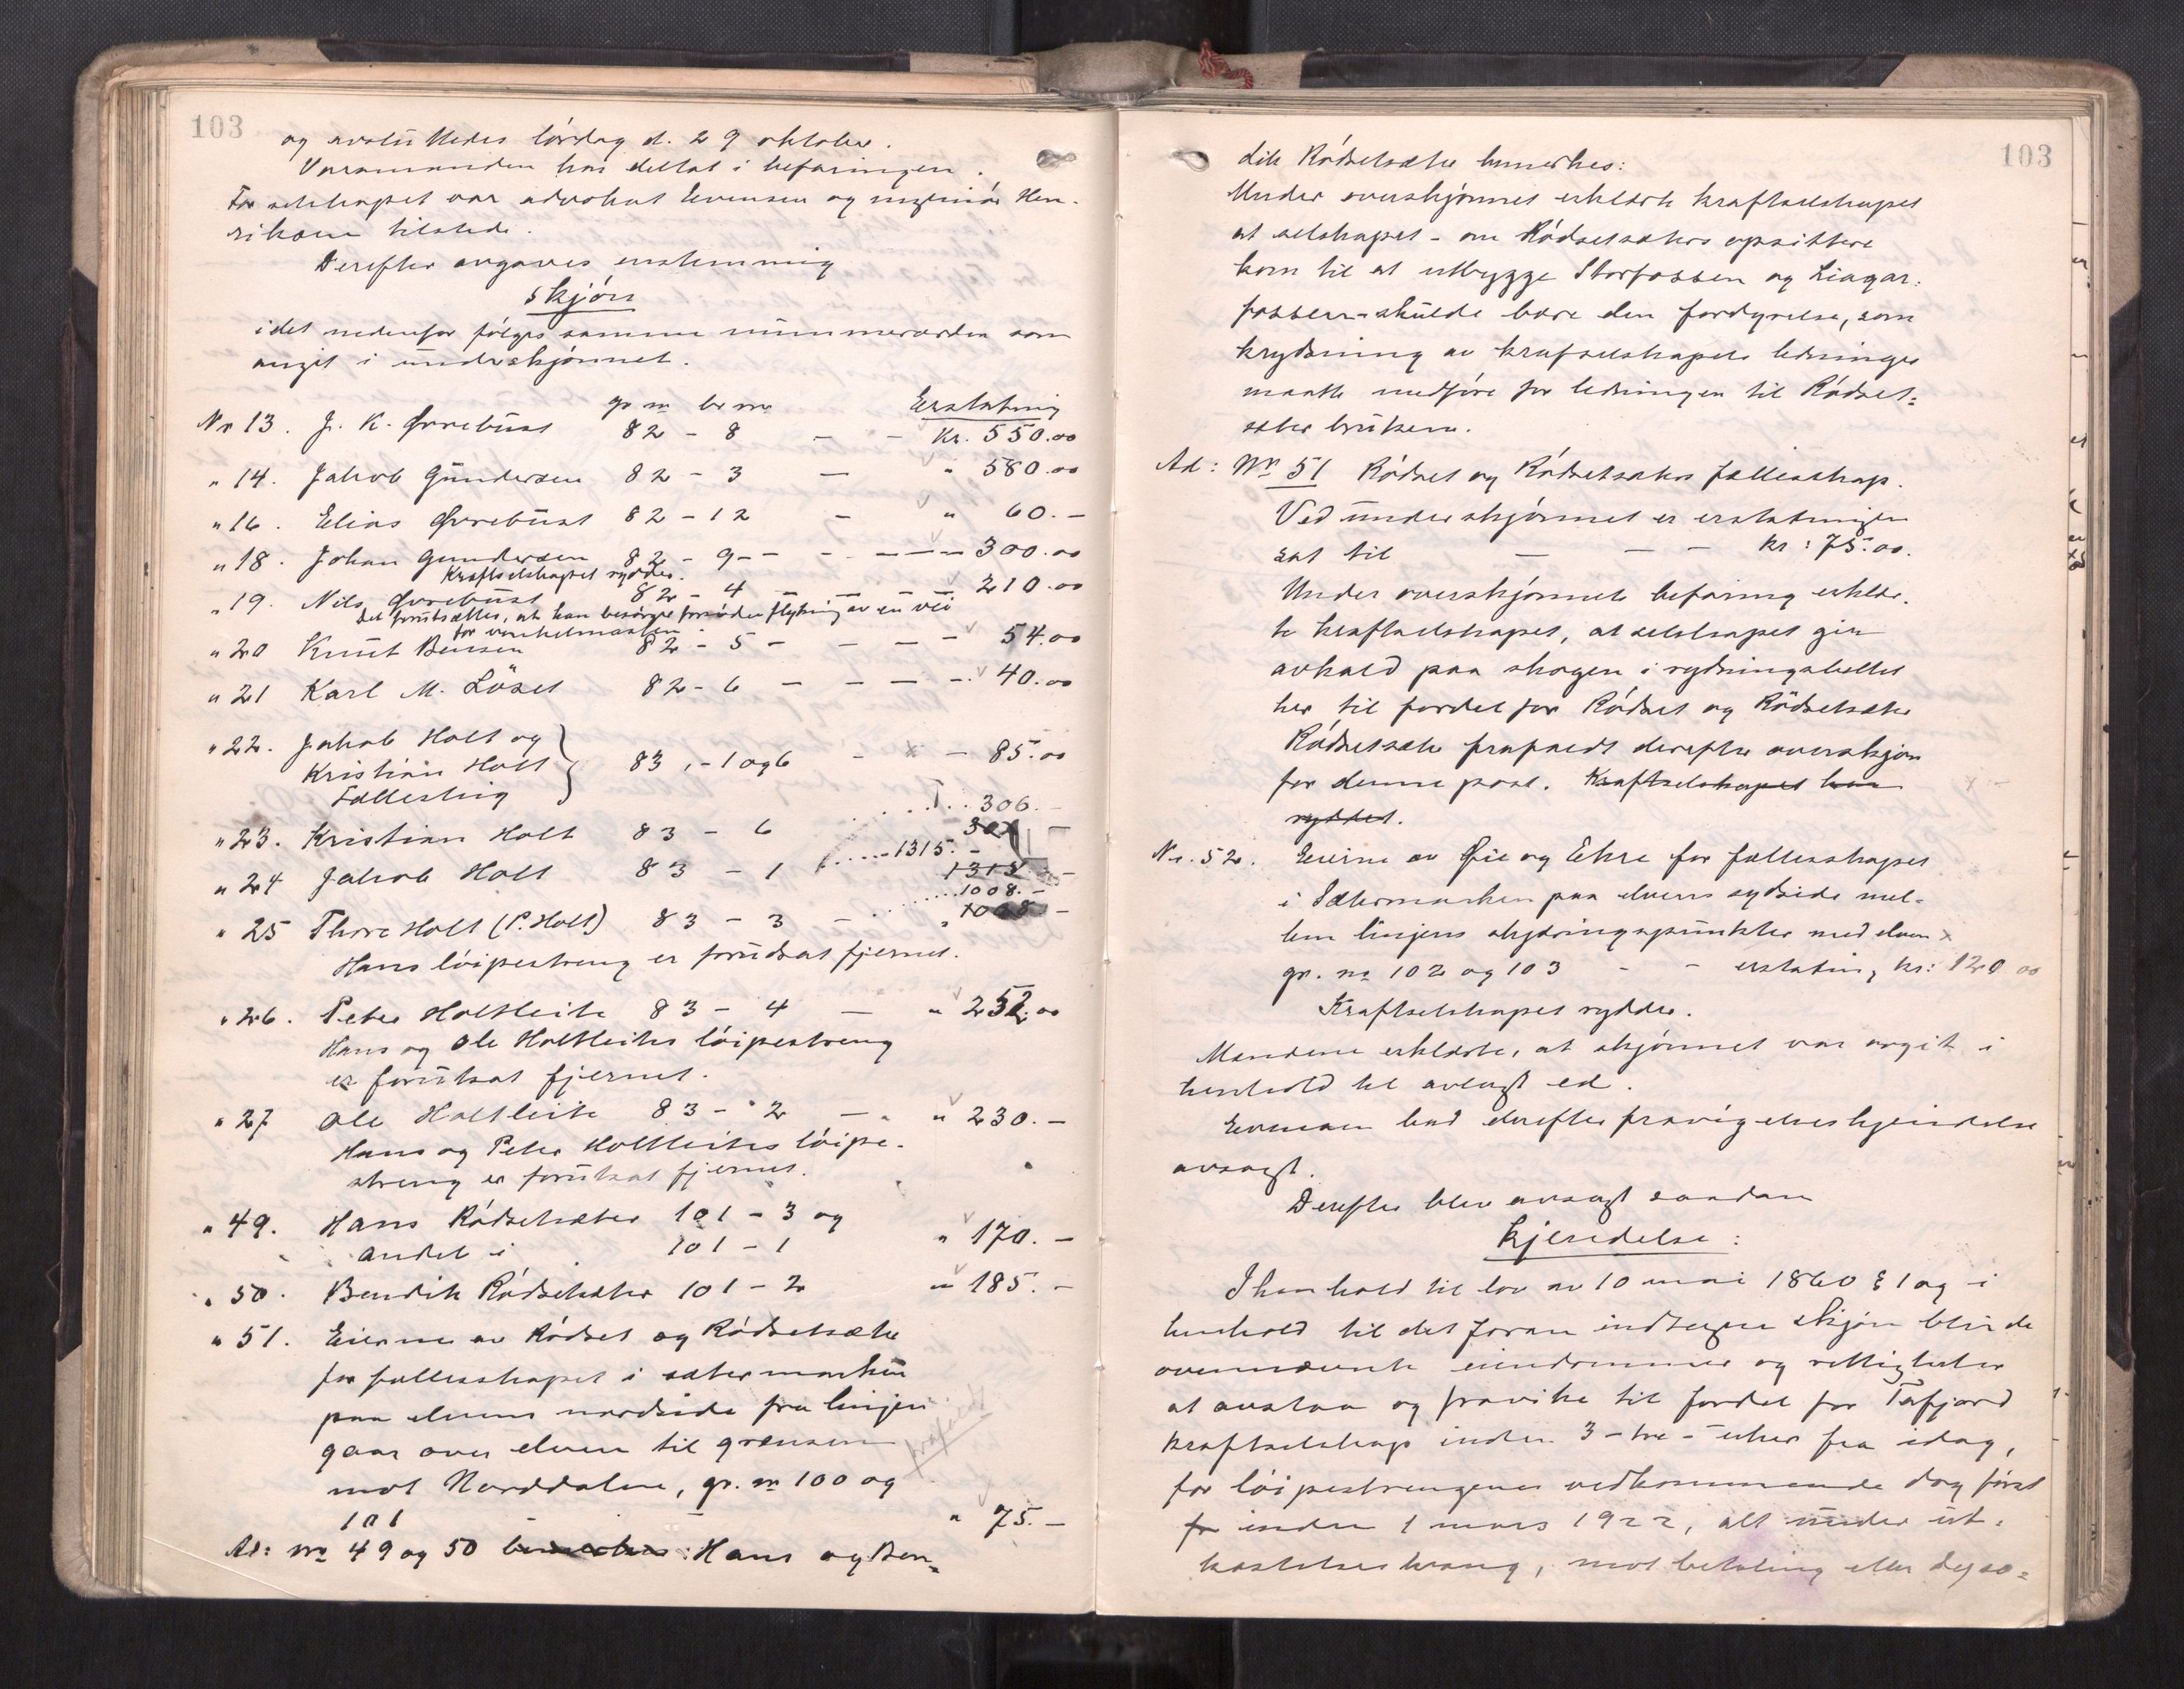 103
og avsluttedes lördag d. 29 oktober.
Varamanden har deltat i befaringen.
For selskapet var advokat Evensen og ingeniör Hen-
riksen tilstede.
Derefter avgaves enstemmig
skjön
idet nedenfor fölges samme nummerorden som
angit i underskjönnet.
gr nr br nr Erstatning
Nr 13. J. K. Øvrebust 82 - 8 - - Kr. 550.00
" 14. Jakob Gundersen 82 - 3 - " 580.00
" 16. Elias Øvrebust 82 - 12 - " 60.-
" 18. Johan Gundersen 82 - 9 - - - - - 300.00
Kraftselskapet rydder.
" 19. Nils Øvrebust 82 - 4 - - - 210.00
Det forutsættes, at han besörger fornöden flytning av en vei
for vinkelmasten.
" 20 Knut Bensen 82 - 5 - - - - 54.00
" 21 Karl M. Löset 82 - 6 - - - - 40.00
" 22. Jakob Holt og
Kristian Holt 83, - 1 og 6 - - 85.00
Fællesteig
306.-
" 23. Kristian Holt 83 - 6
1315.-
" 24 Jakob Holt 83 - 1 1315 -
1008.-
" 25 Thore Holt (P. Holt) 83 - 3 - " 1008 -
Hans löipestreng er forutsat fjernet.
" 26. Peter Holtleite 83 - 4 - " 252.00
Hans og Ole Holtleites löipestreng
er forutsat fjernet.
" 27 Ole Holtleite 83 - 2 - " 230.-
Hans og Peter Holtleites löipe-
streng er forutsat fjernet.
" 49. Hans Rödsetsæter 101 - 3 og
andel i 101 - 1 " 170.-
" 50. Bendik Rödsetsæter 101 - 2 " 185.-
" 51. Eierne av Rödset og Rödsetsæter
for fællesskapet i sætermarken
paa elvens nordside fra linjen
gaar over elven til grænsen
mot Norddalen, gr. nr 100 og
101 " 75.-
frafaldt
Ad: nr 49 og 50 bemerkes: Hans og Ben-
103
dik Rödsetsæter bemerkes:
Under overskjönnet erklærte kraftselskapet
at selskapet - om Rödsetsæters opsittere
kom til at utbygge Storfossen og Liagar-
fossen - skulde bære den fordyrelse, som
krydsning av krafselskapets ledninger
maatte medföre for ledningen til Rödset-
sæter brukene.
Ad: Nr 51 Rödset og Rödsetsæters fællesskap.
Ved underskjönnet er erstatningen
sat til - - - kr: 75.00.
Under overskjönnets befaring erklær-
te kraftselskapet, at selskapet gir
avkald paa skogen i rydningsbeltet
her til fordel for Rödset og Rödsetsæter
Rödsetsæter frafaldt derefter overskjön
for denne post. Kraftselskapet har
ryddet.
Nr. 52. Eierne av Øie og Ehre for fællesskapet
i Sætermarken paa elvens sydside mel-
lem linjens skjæringspunkter med elven x
gr. nr 102 og 103 - - erstatning kr: 120 00
Kraftselskapet rydder.
Mændene erklærte, at skjönnet var avgit i
henhold til avlagt ed.
Evensen bad derefter fravigelseskjendelse
avsagt.
Derefter blev avsagt saadan
Kjendelse:
I henhold til lov av 10 mai 1860 § 1 og i
henhold til det foran indtagne skjön blir de
ovennævnte eiendommer og rettigheter
at avstaa og fravike til fordel for Tafjord
kraftselskap inden 3 - tre - uker fra idag,
for löipestrengenes vedkommende dog först
for inden 1 mars 1922, alt under ut-
kastelsestvang, mot betaling eller depo-